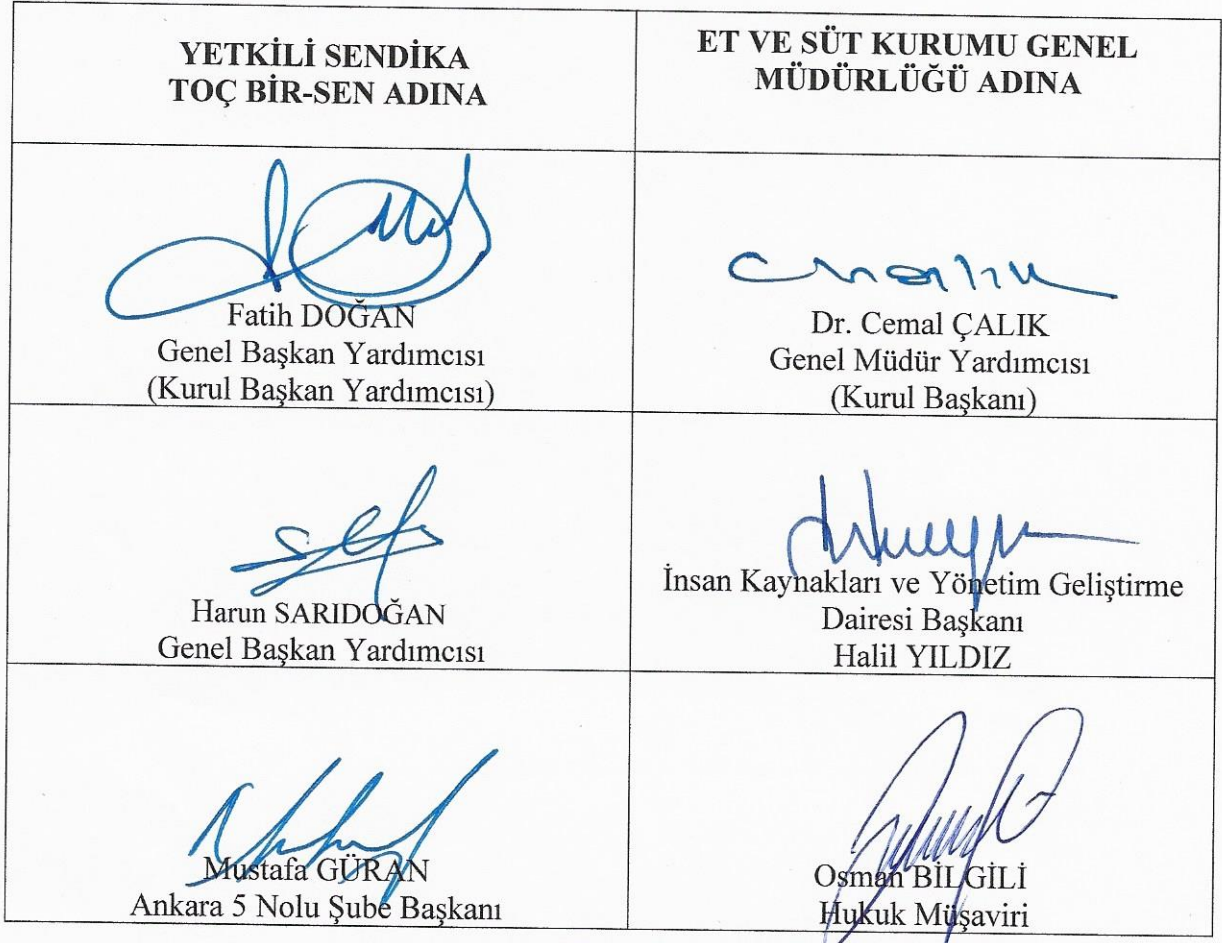 YETKİLİ SENDİKA
TOÇ BİR-SEN ADINA
ET VE SÜT KURUMU GENEL
MÜDÜRLÜĞÜ ADINA
Fatih DOĞAN
Genel Başkan Yardımcısı
(Kurul Başkan Yardımcısı)
Dr. Cemal ÇALIK
Genel Müdür Yardımcısı
(Kurul Başkanı)
Harun SARIDOĞAN
Genel Başkan Yardımcısı
İnsan Kaynakları ve Yönetim Geliştirme
Dairesi Başkanı
Halil YILDIZ
Mustafa GÜRAN
Ankara 5 Nolu Şube Başkanı
Osman BİLGİLİ
Hukuk Müşaviri